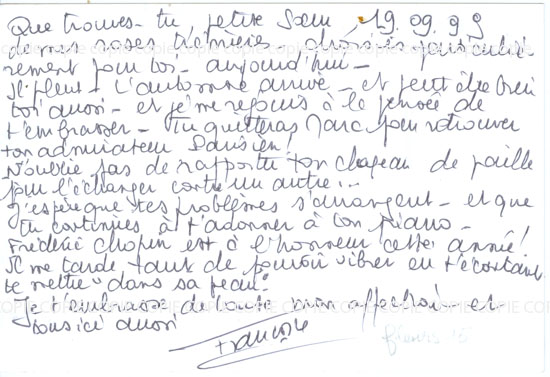 Que trouves-tu petite Sœur 19.09.99
de mes roses trémières choisies particuliè-
rement pour toi - aujourd'hui -
Il pleut - L'automne arrive - et peut être bien
toi aussi - et je me rejouis à la pensée de
t'embrasser - Tu quitteras Marc pour retrouver
ton admirateur Parisien !
N'oublie pas de rapporter ton chapeau de paille
pour l'échanger contre un autre...
J'espère que tes problèmes s'arrangent - et que
tu continues à t'adonner à ton piano -
Frédéric Chopin est à l'honneur cette année !
Il me tarde tant de pouvoir vibrer en t'écoutant
te mettre "dans sa peau".
Je t'embrasse de toute mon affection et
tous ici aussi
Françoise
COPIE COPIE COPIE COPIE COPIE COPIE
COPIE COPIE COPIE COPIE COPIE COPIE